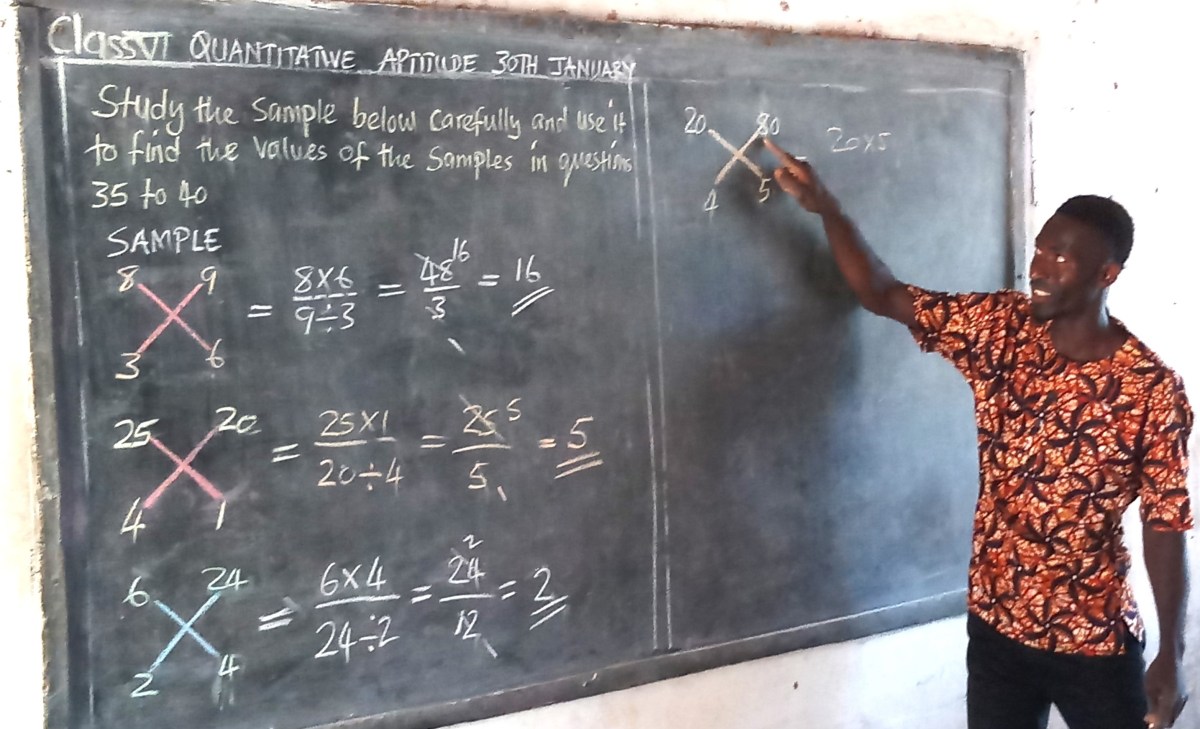 Class VI QUANTITATIVE APTITUDE 30TH JANUARY
Study the Sample below carefully and use it
to find the values of the Samples in questions
35 to 40
SAMPLE
8 9
3 6
= 8×6 / 9÷3 = 48 16 / 3 = 16
25 20
4 1
= 25×1 / 20÷4 = 25 5 / 5 = 5
6 24
2 4
= 6×4 / 24÷2 = 24 2 / 12 = 2
20 80
4 5
20×5